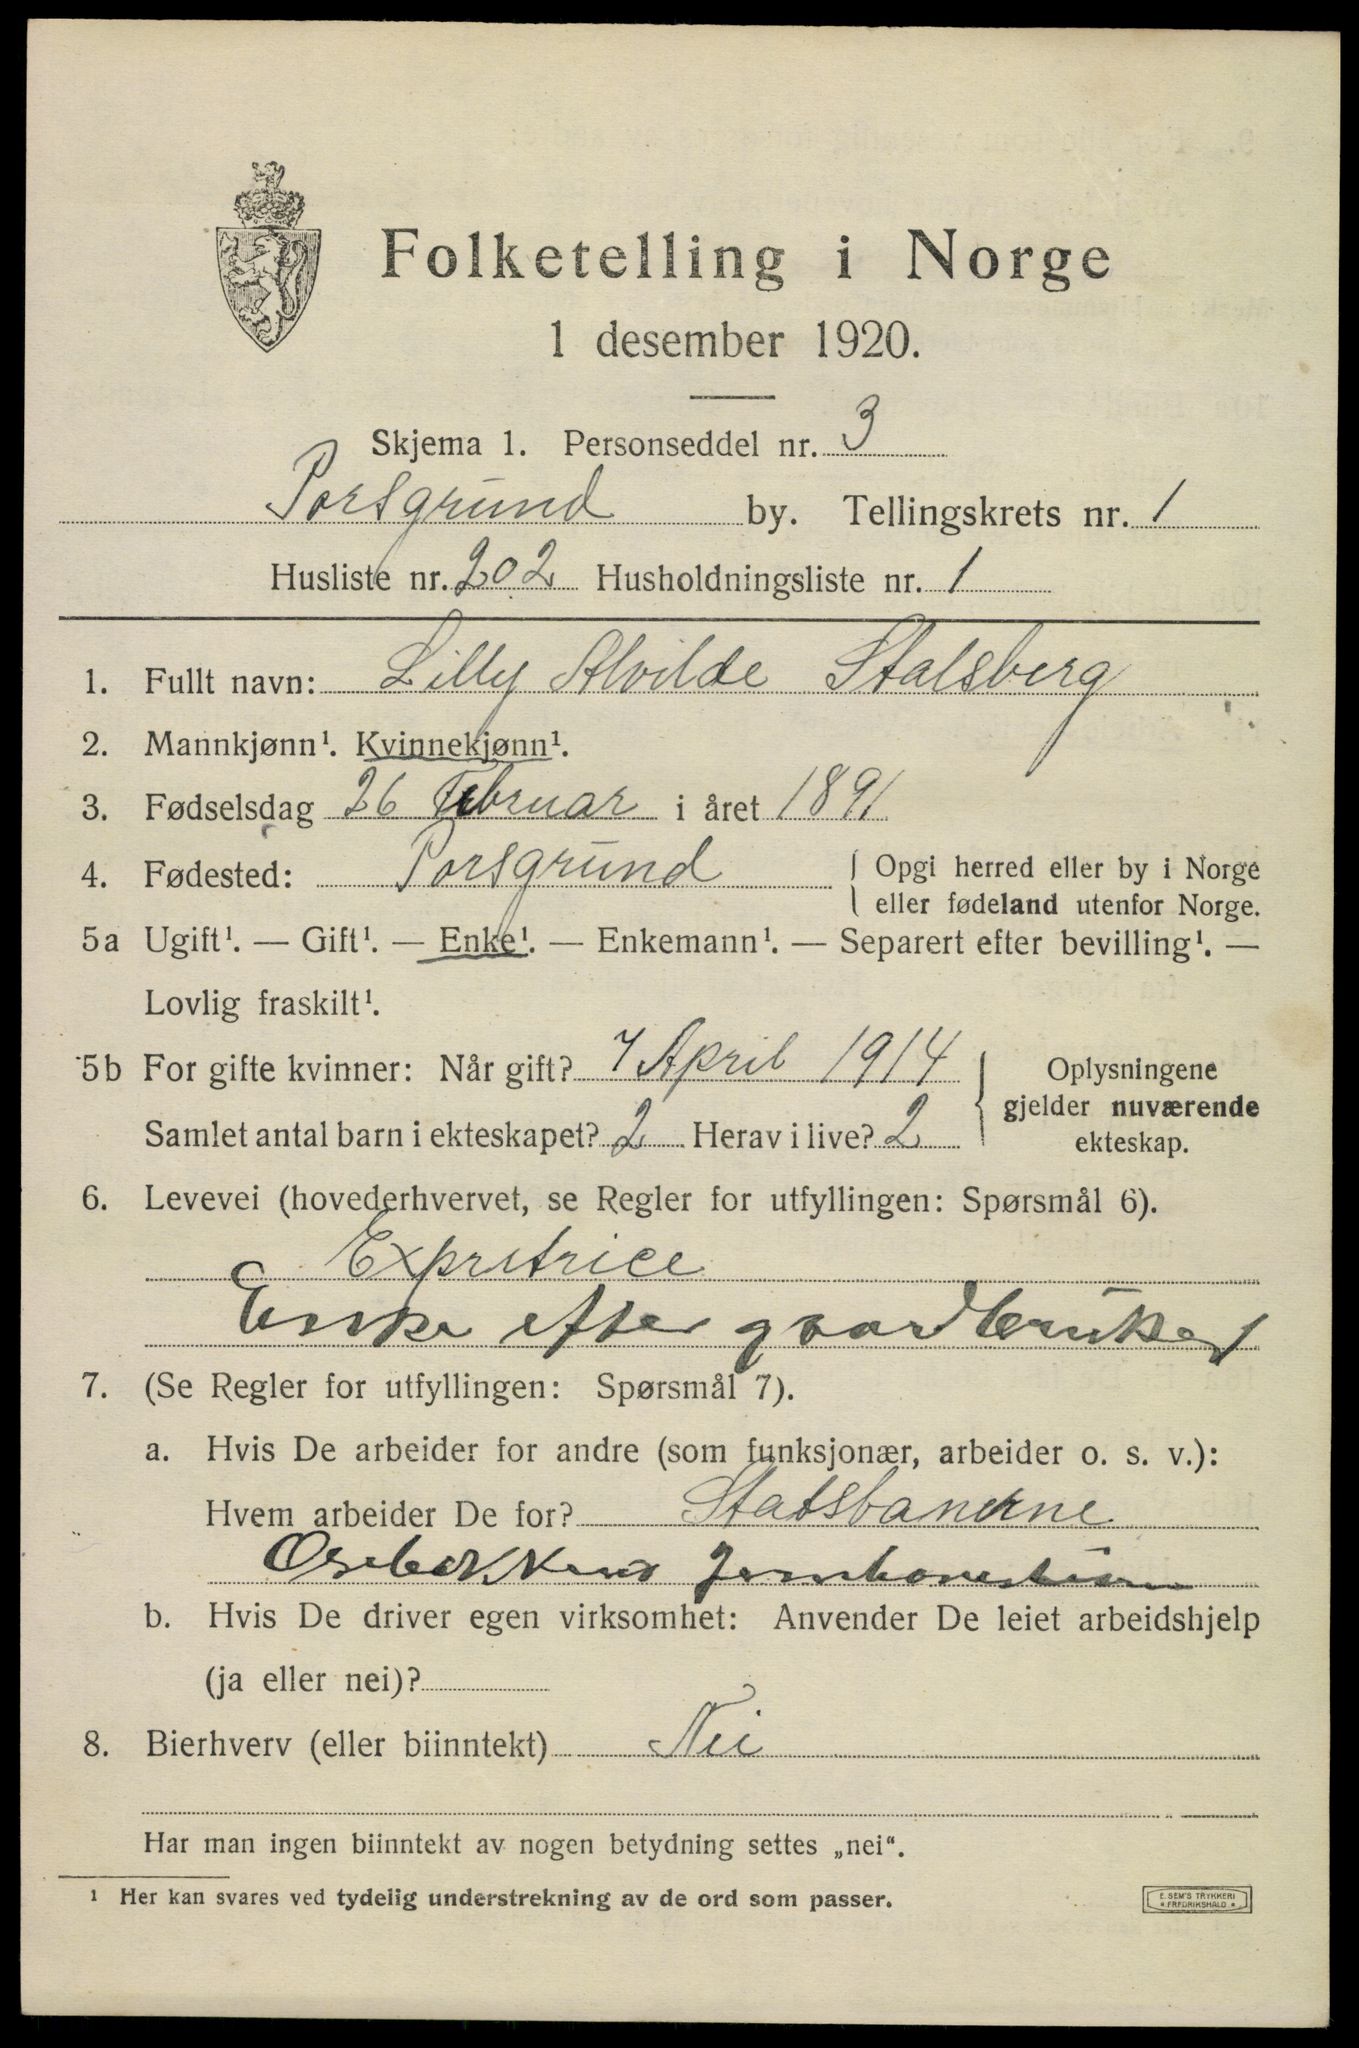 Folketelling i Norge
1 desember 1920.
Skjema 1. Personseddel nr. 3
Porsgrund by. Tellingskrets nr. 1
Husliste nr. 202 Husholdningsliste nr. 1
1. Fullt navn: Lilly Alvilde Stalsberg
2. Mannkjønn¹. Kvinnekjønn¹.
3. Fødselsdag 26 Februar i året 1891
4. Fødested: Porsgrund { Opgi herred eller by i Norge
eller fødeland utenfor Norge.
5a Ugift¹. — Gift¹. — Enke¹. — Enkemann¹. — Separert efter bevilling¹. —
Lovlig fraskilt¹.
5b For gifte kvinner: Når gift? 7 April 1914 { Oplysningene
gjelder nuværende
Samlet antal barn i ekteskapet? 2 Herav i live? 2
ekteskap.
6. Levevei (hovederhvervet, se Regler for utfyllingen: Spørsmål 6).
Expretrice
Enke efter gaardbruker
7. (Se Regler for utfyllingen: Spørsmål 7).
a. Hvis De arbeider for andre (som funksjonær, arbeider o. s. v.):
Hvem arbeider De for? Statsbanerne
Osebakkens Jernbanestation
b. Hvis De driver egen virksomhet: Anvender De leiet arbeidshjelp
(ja eller nei)?
8. Bierhverv (eller biinntekt) Nei
Har man ingen biinntekt av nogen betydning settes „nei“.
¹ Her kan svares ved tydelig understrekning av de ord som passer.
E. SEM'S TRYKKERI
* FREDRIKSHALD *